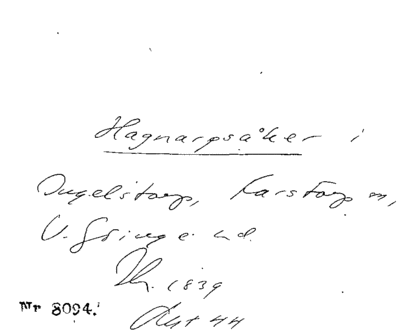 Hagnarpsåker i
Ingelstorp, Karstorp m,
V. Göinge hd.
1839
Nr 8094.
Akt 44